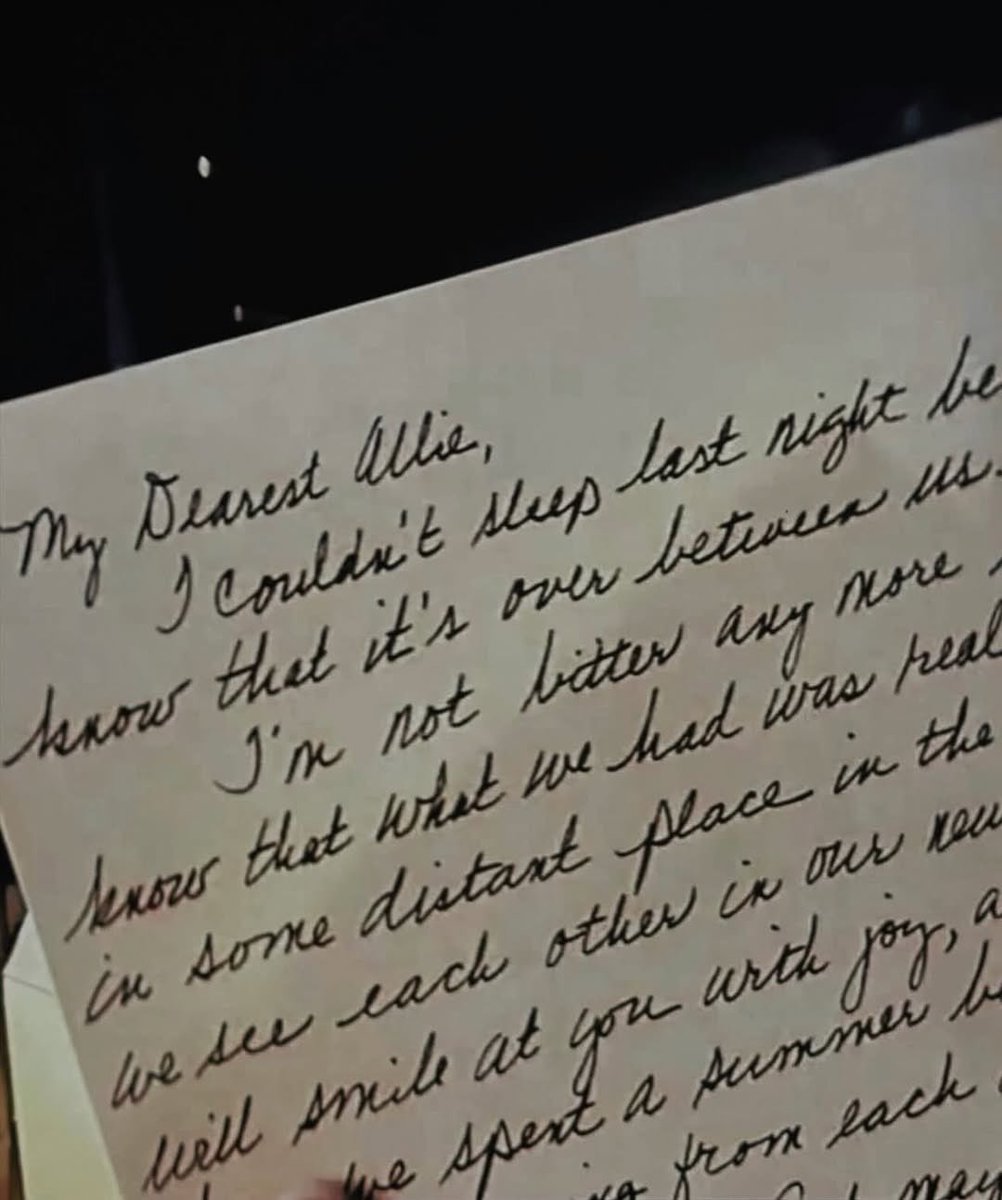 My Dearest Allie,
I couldn't sleep last night be
know that it's over between us.
I'm not bitter any more
know that what we had was real
in some distant place in the
we see each other in our new
will smile at you with joy, a
we spent a summer b
from each
may